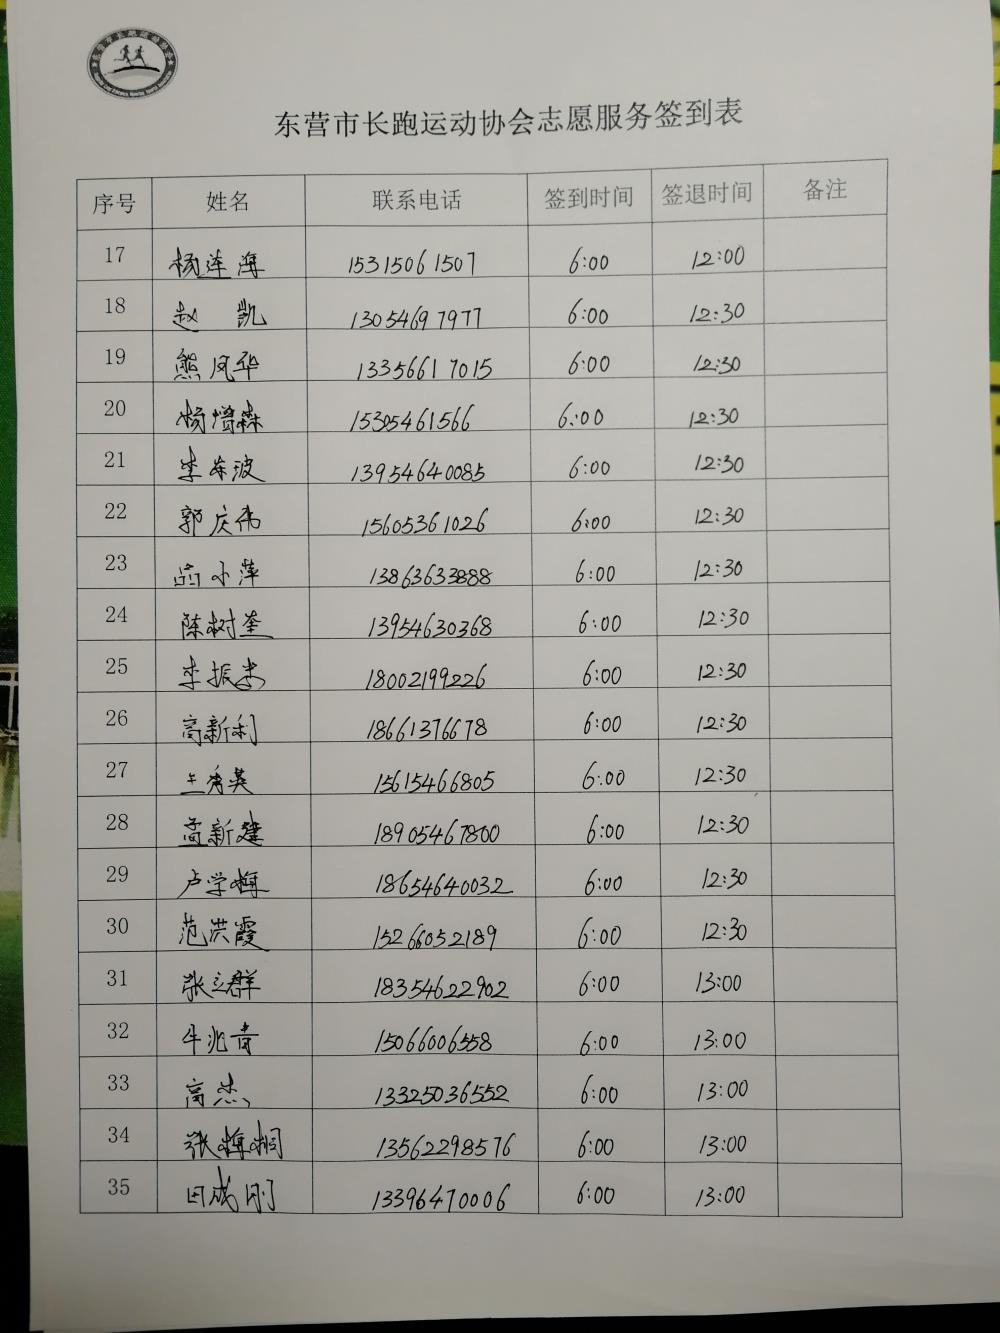 东营市长跑运动协会志愿服务签到表
序号 姓名 联系电话 签到时间 签退时间 备注
17 杨连海 15315061507 6:00 12:00
18 赵凯 13054697977 6:00 12:30
19 熊凤华 13356617015 6:00 12:30
20 杨增森 15305461566 6:00 12:30
21 李东波 13954640085 6:00 12:30
22 郭庆伟 15605361026 6:00 12:30
23 小萍 13863633888 6:00 12:30
24 陈树奎 13954630368 6:00 12:30
25 李振 18002199226 6:00 12:30
26 高新利 18661376678 6:00 12:30
27 王秀英 15615466805 6:00 12:30
28 高新建 18905467800 6:00 12:30
29 卢学梅 18654640032 6:00 12:30
30 范洪霞 15266052189 6:00 12:30
31 张立群 18354622902 6:00 13:00
32 牛兆青 15066006558 6:00 13:00
33 高杰 13325036552 6:00 13:00
34 张梅桐 13562298576 6:00 13:00
35 田成刚 13396470006 6:00 13:00